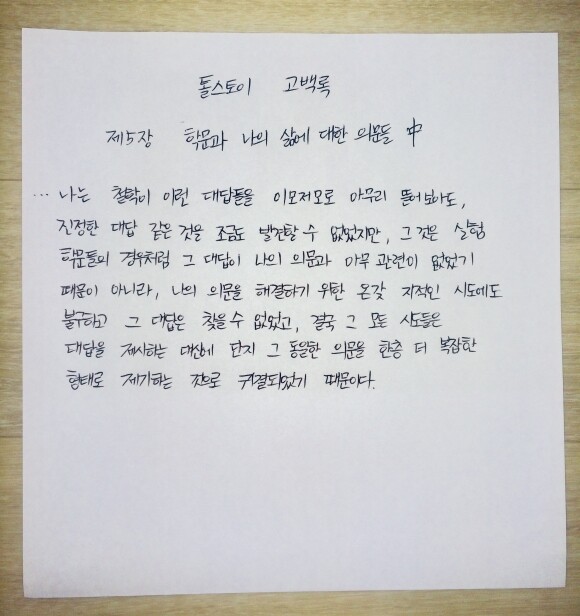 톨스토이 고백록
제5장 학문과 나의 삶에 대한 의문들 中
… 나는 철학이 이런 대답들을 이모저모로 아무리 뜯어보아도,
진정한 대답 같은 것을 조금도 발견할 수 없었지만, 그것은 실험
학문들의 경우처럼 그 대답이 나의 의문과 아무 관련이 없었기
때문이 아니라, 나의 의문을 해결하기 위한 온갖 지적인 시도에도
불구하고 그 대답은 찾을 수 없었고, 결국 그 모든 시도들은
대답을 제시하는 대신에 단지 그 동일한 의문을 한층 더 복잡한
형태로 제기하는 것으로 귀결되었기 때문이다.